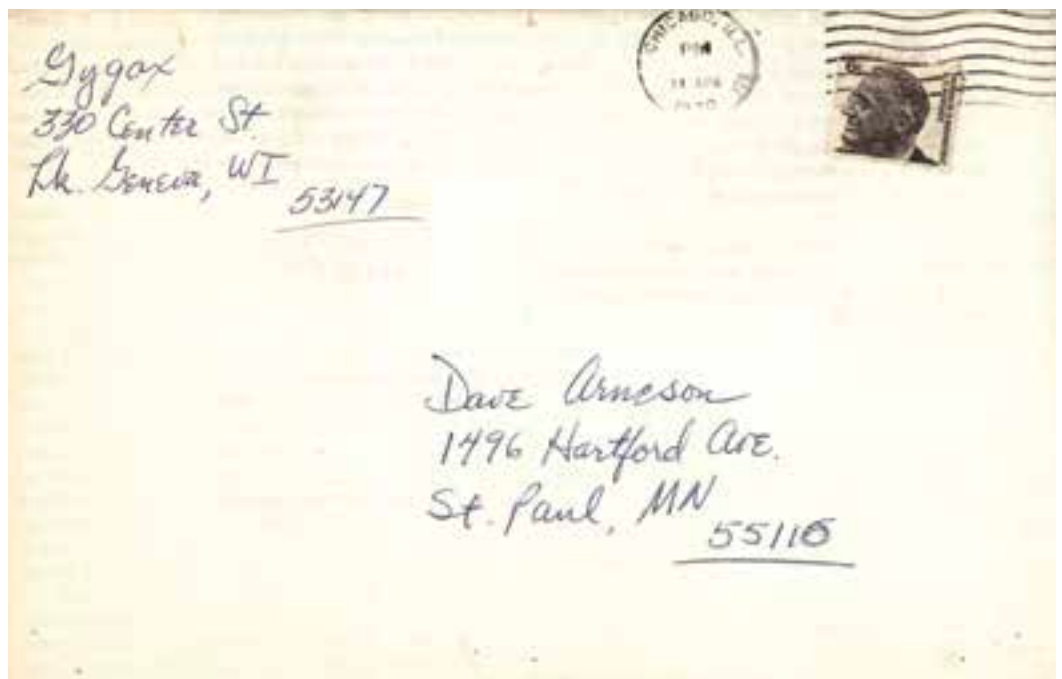 Gygax
330 Center St.
Lk. Geneva, WI
53147
CHICAGO, ILL.
PM
11 APR
1970
6c
Dave Arneson
1496 Hartford Ave.
St. Paul, MN
55116